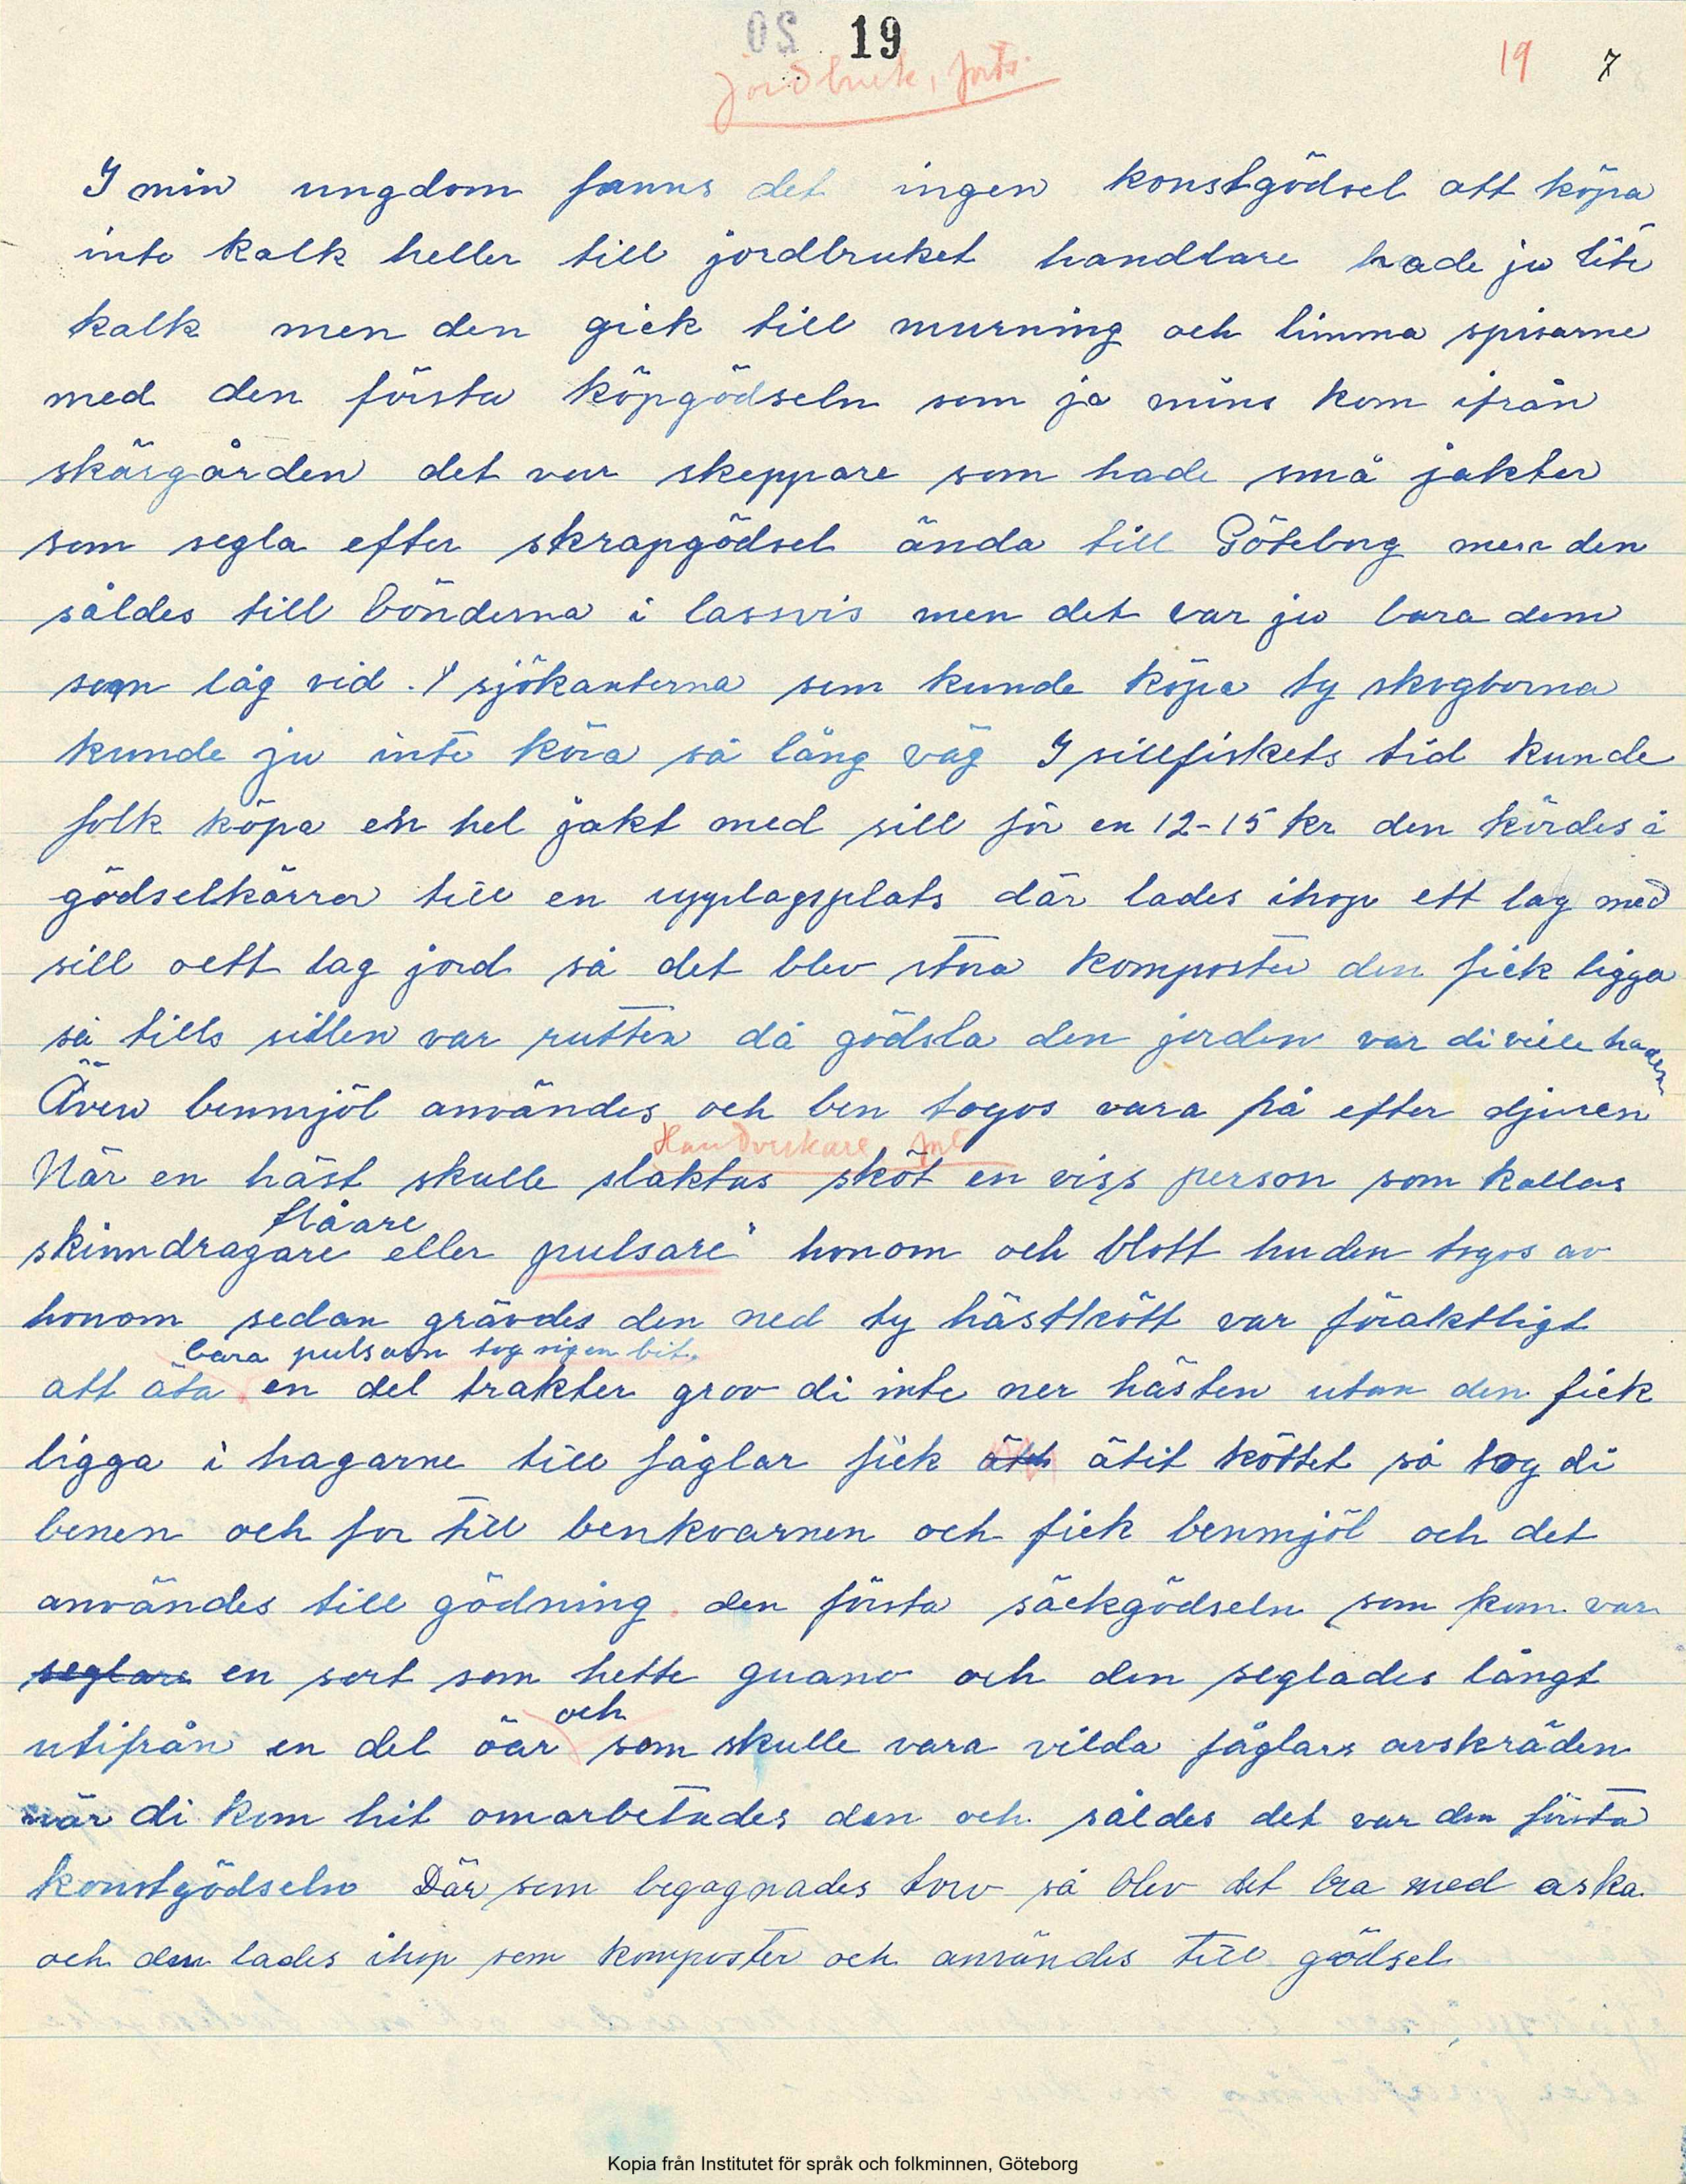 19
19 7
jordbruk, forts.
I min ungdom fanns det ingen konstgödsel att köpa
inte kalk heller till jordbruket handlare hade ju lite
kalk men den gick till murning och limma spisarne
med den första köpgödseln som ja mins kom ifrån
skärgården det var skeppare som hade små jakter
som segla efter skrapgödsel ända till Göteborg men den
såldes till bönderna i lassvis men det var ju bara dem
som låg vid sjökanterna som kunde köpa ty skogborna
kunde ju inte köra så lång väg I sillfiskets tid kunde
folk köpa en hel jakt med sill för en 12-15 kr den kördes i
gödselkärror till en upplagsplats där lades ihop ett lag med
sill oett lag jord så det blev stora komposter den fick ligga
så tills sillen var rutten då gödsla den jorden var di ville haden
Även benmjöl användes och ben togos vara på efter djuren
Handverkare, ml
När en häst skulle slaktas sköt en viss person som kallas
flåare
skinndragare eller pulsare" honom och blott huden togos av
honom sedan grävdes den ned ty hästkött var föraktligt
bara pulsaren tog sig en bit.
att äta en del trakter grov di inte ner hästen utan den fick
ligga i hagarne till fåglar fick ätit köttet så tog di
benen och for till benkvarnen och fick benmjöl och det
användes till gödning. den första säckgödseln som kom var
seglare en sort som hette guano och den seglades långt
och
utifrån en del öar som skulle vara vilda fåglars avskräden
när di kom hit omarbetades den och såldes det var den första
konstgödseln Där som begagnades torv så blev det bra med aska
och den lades ihop som komposter och användes till gödsel
Kopia från Institutet för språk och folkminnen, Göteborg